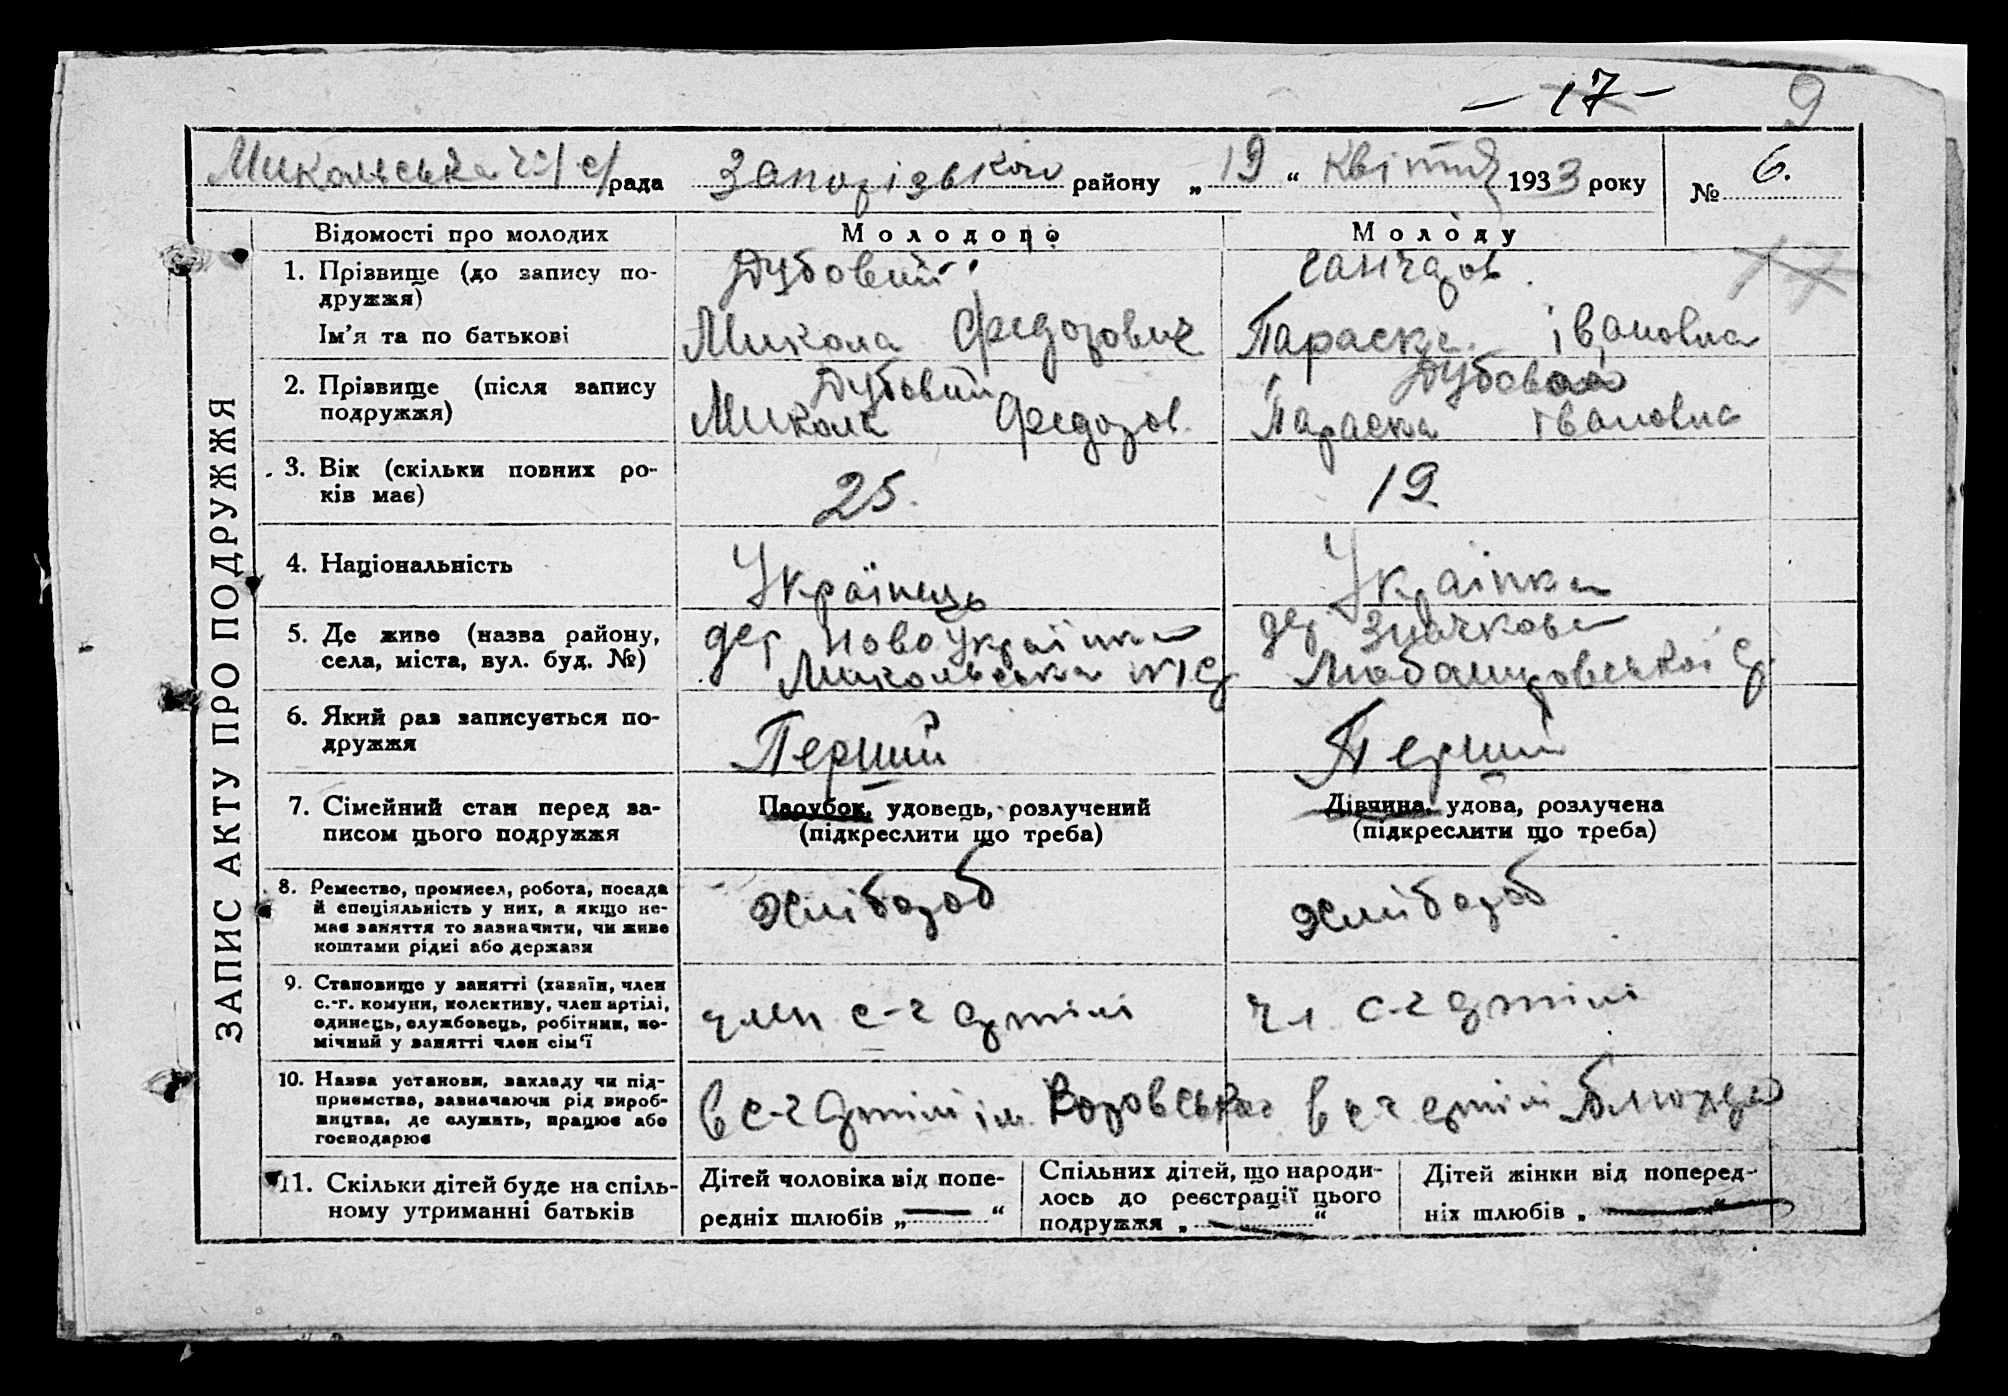 - 17 -
9
Микольська с/рада Запорізького району „ 19 “ квітня 1933 року № 6.
ЗАПИС АКТУ ПРО ПОДРУЖЖЯ
Відомості про молодих
Молодого
Молоду
1. Прізвище (до запису по-
дружжя)
Ім'я та по батькові
Дубовий
Микола Федорович
Ганчаров
Параска Івановна
2. Прізвище (після запису
подружжя)
Дубовий
Микола Федоров.
Дубовая
Параска Івановна
3. Вік (скільки повних ро-
ків має)
25.
19
4. Національність
Українець
Українка
5. Де живе (назва району,
села, міста, вул. буд. №)
дер Ново Українка
Микольська №1 ср
дер Значкова
Любашировської ср.
6. Який раз записується по-
дружжя
Перший
Перший
7. Сімейний стан перед за-
писом цього подружжя
Парубок, удовець, розлучений
(підкреслити що треба)
Дівчина, удова, розлучена
(підкреслити що треба)
8. Ремество, промисел, робота, посада
й спеціяльність у них, а якщо не-
має заняття то зазначити, чи живе
коштами рідні або держави
Хлібороб
Хлібороб
9. Становище у занятті (хазяїн, член
с.-г. комуни, колективу, член артілі,
одинець, службовець, робітник, по-
мічний у занятті член сім'ї
член с-г артілі
чл. с-г артілі
10. Назва установи, закладу чи під-
приємства, зазначаючи рід вироб-
ництва, де служить, працює або
господарює
в с-г артілі ім. Воровського
в с г артілі Блюхера
11. Скільки дітей буде на спіль-
ному утриманні батьків
Дітей чоловіка від попе-
редніх шлюбів „ — “
Спільних дітей, що народи-
лось до реєстрації цього
подружжя „ — “
Дітей жінки від поперед-
ніх шлюбів „ — “